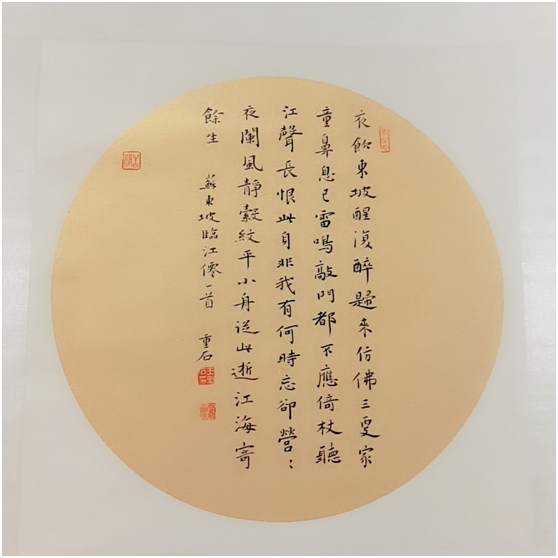 夜飲東坡醒復醉歸來仿佛三更家
童鼻息已雷鳴敲門都不應倚杖聽
江聲長恨此身非我有何時忘卻營：
夜闌風靜縠紋平小舟從此逝江海寄
餘生 蘇東坡臨江僊一首 重石